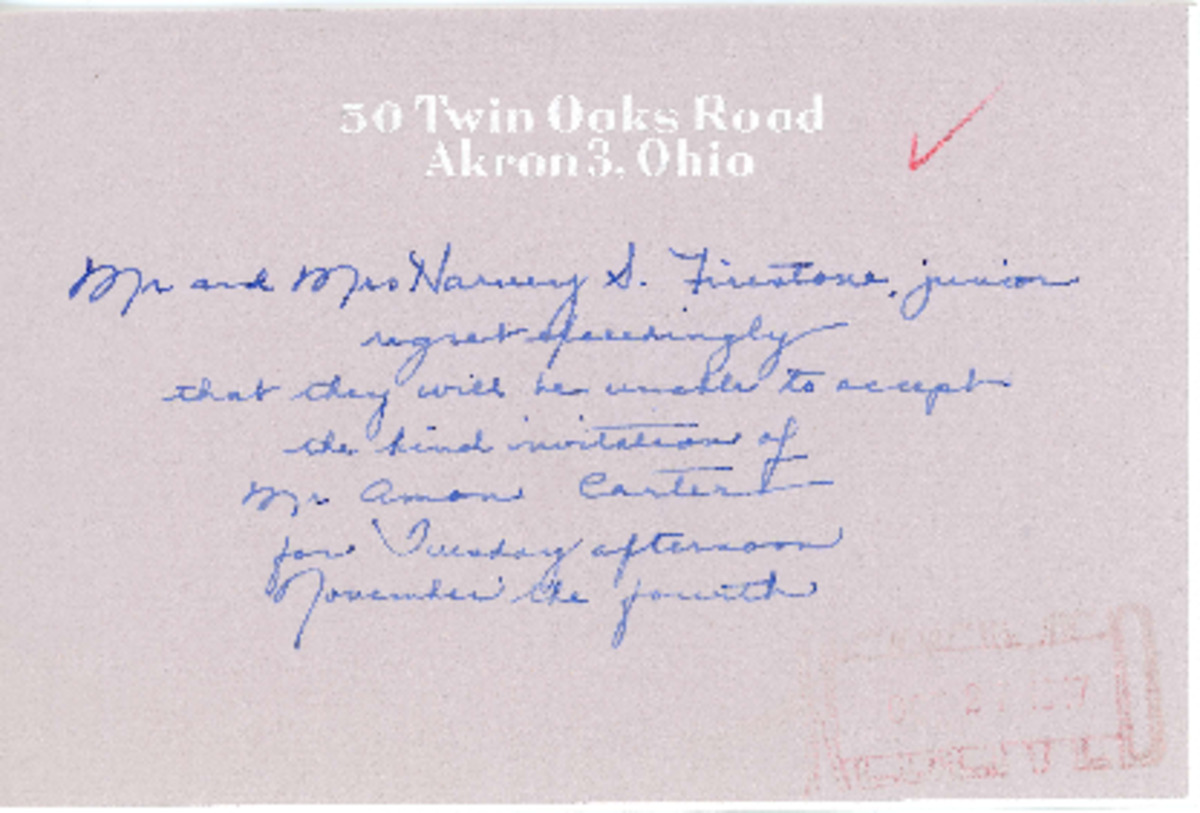 50 Twin Oaks Road
Akron 3, Ohio
Mr and Mrs Harvey S. Firestone, junior
regret exceedingly
that they will be unable to accept
the kind invitation of
Mr Amon Carter
for Tuesday afternoon
November the fourth